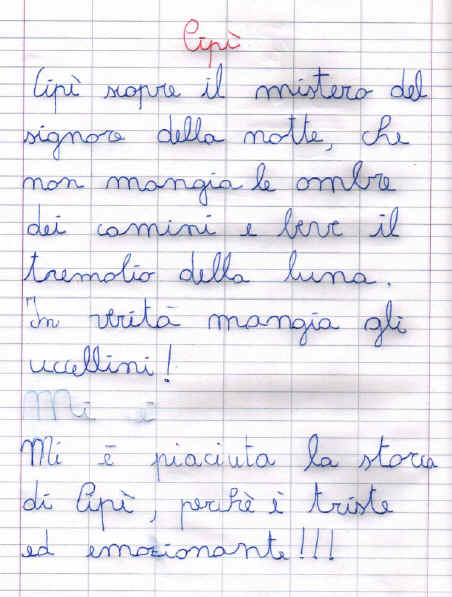 Cipì
Cipì scopre il mistero del
signore della notte, che
non mangia le ombre
dei camini e beve il
tremolio della luna.
In verità mangia gli
uccellini!
Mi è
Mi è piaciuta la storia
di Cipì, perchè è triste
ed emozionante!!!